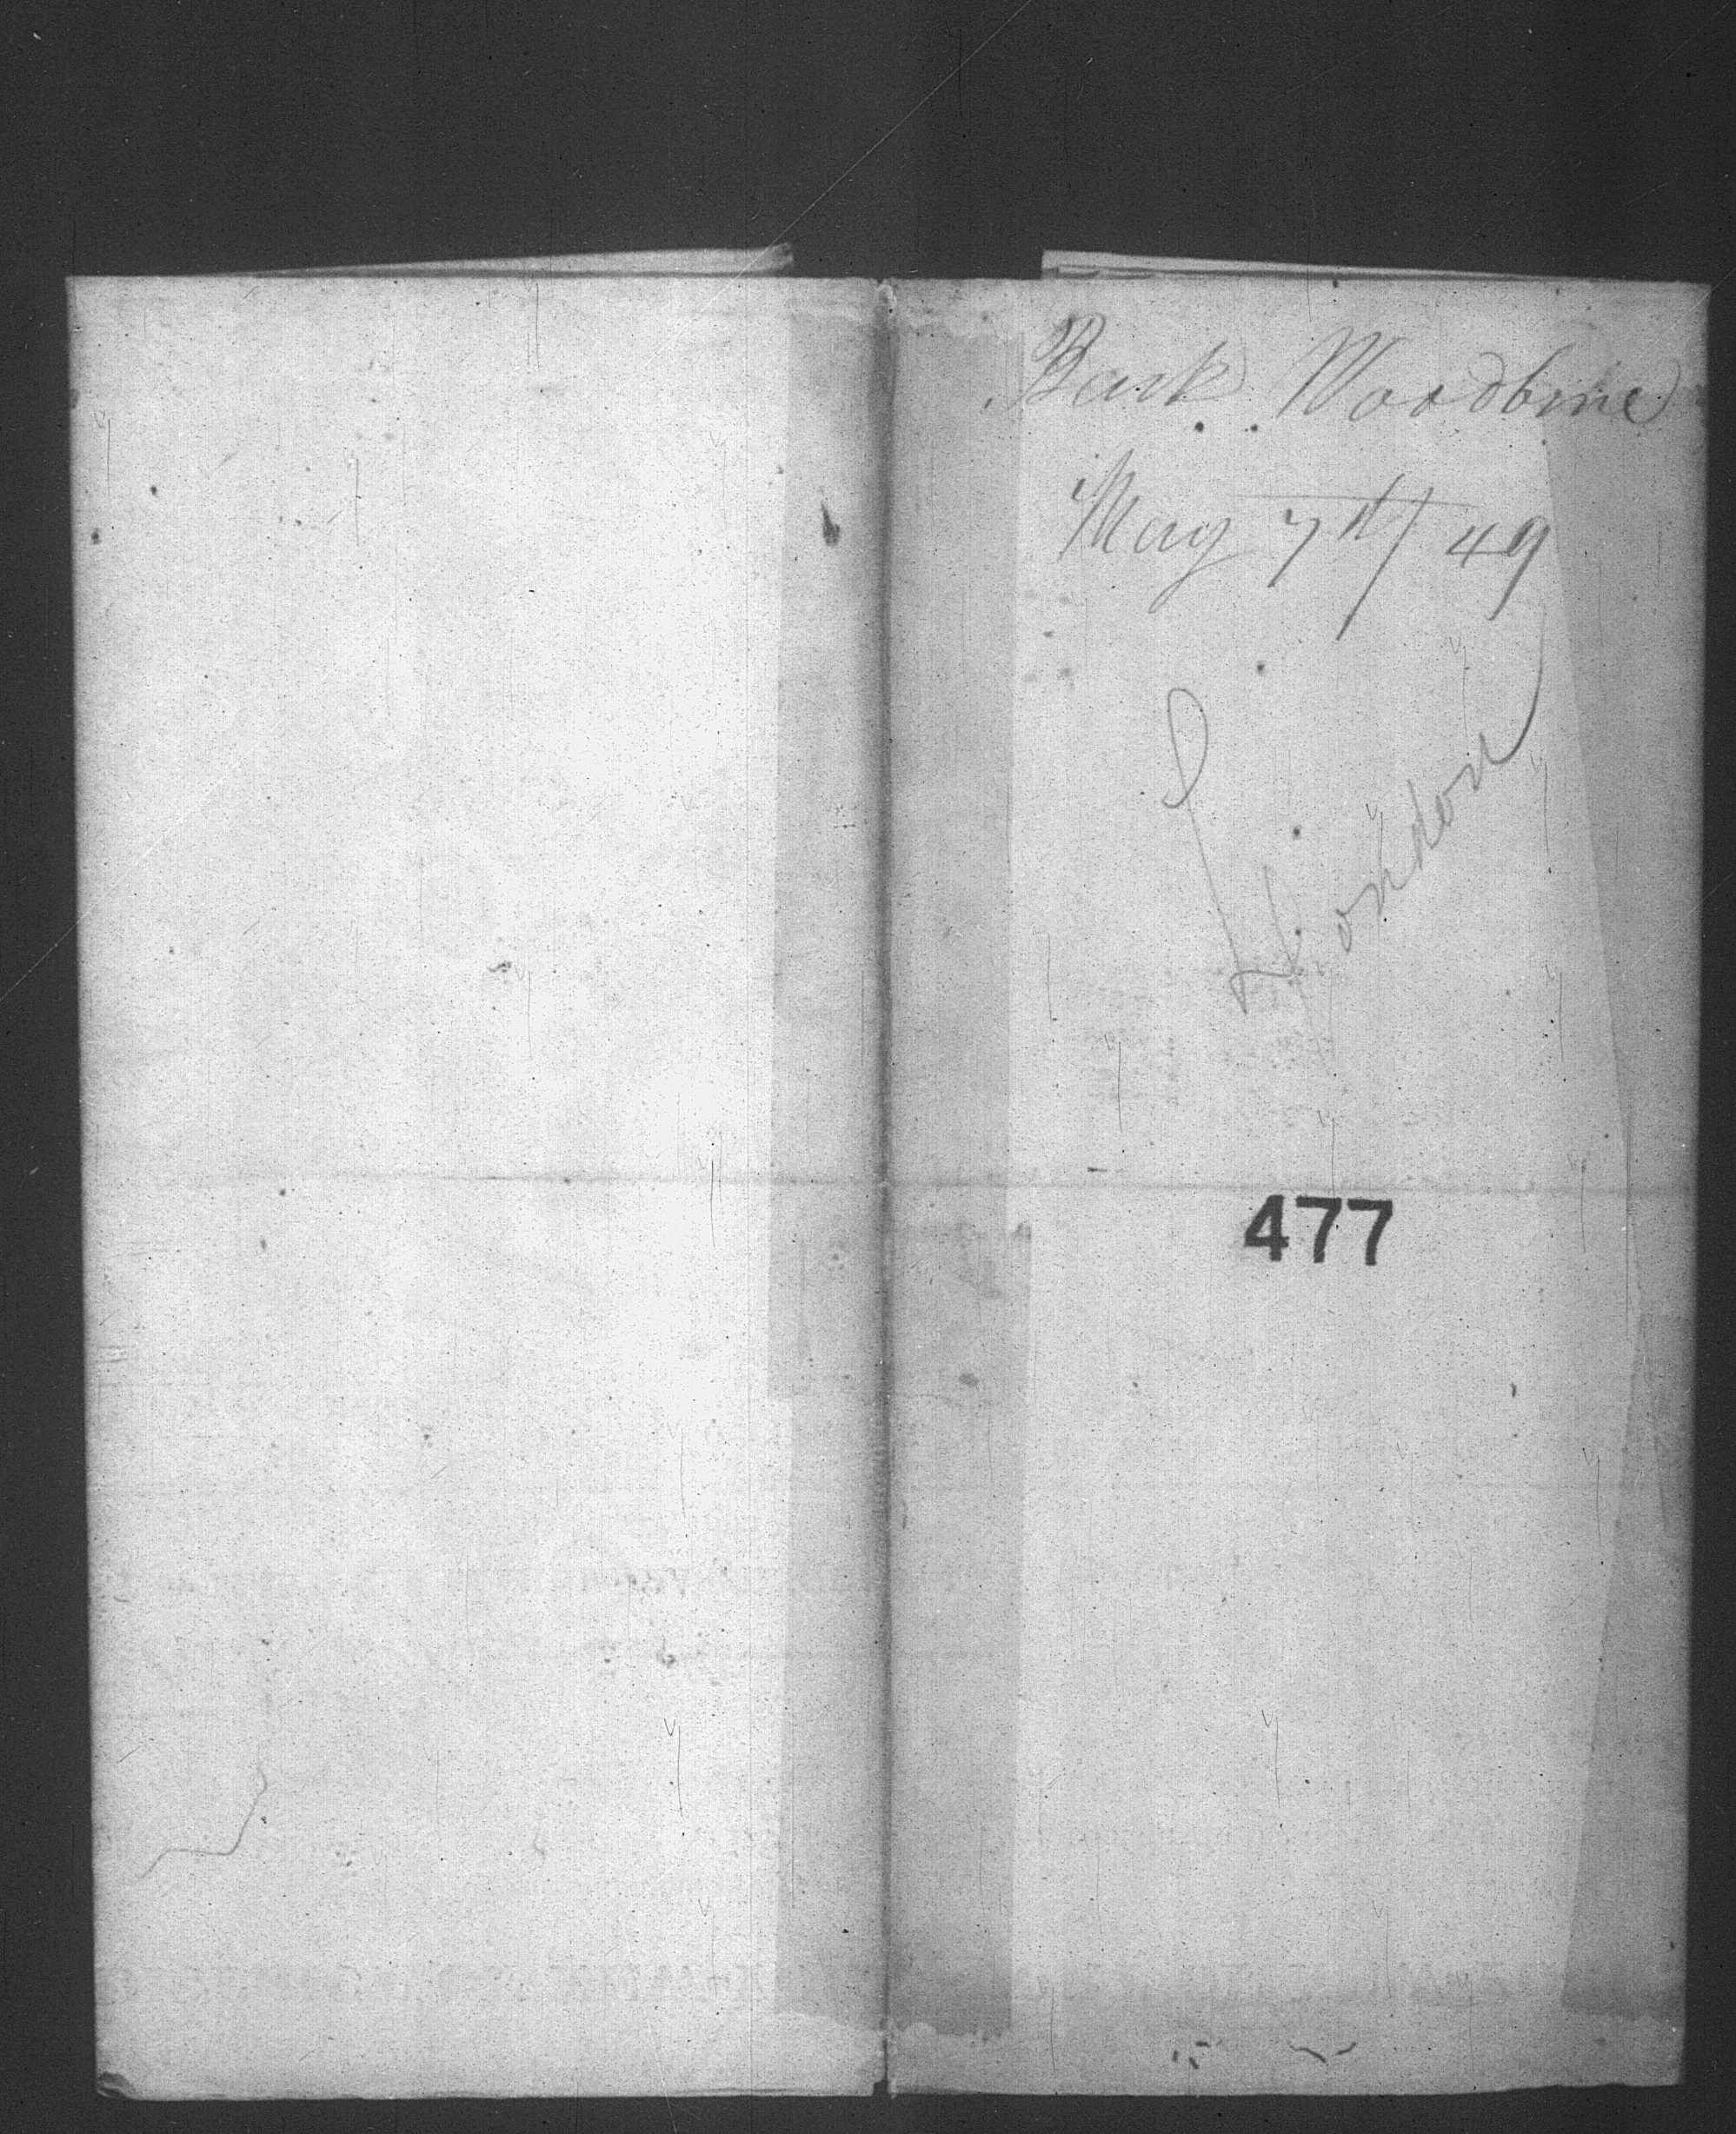 Bark Woodbine
May 7th/49
London
477